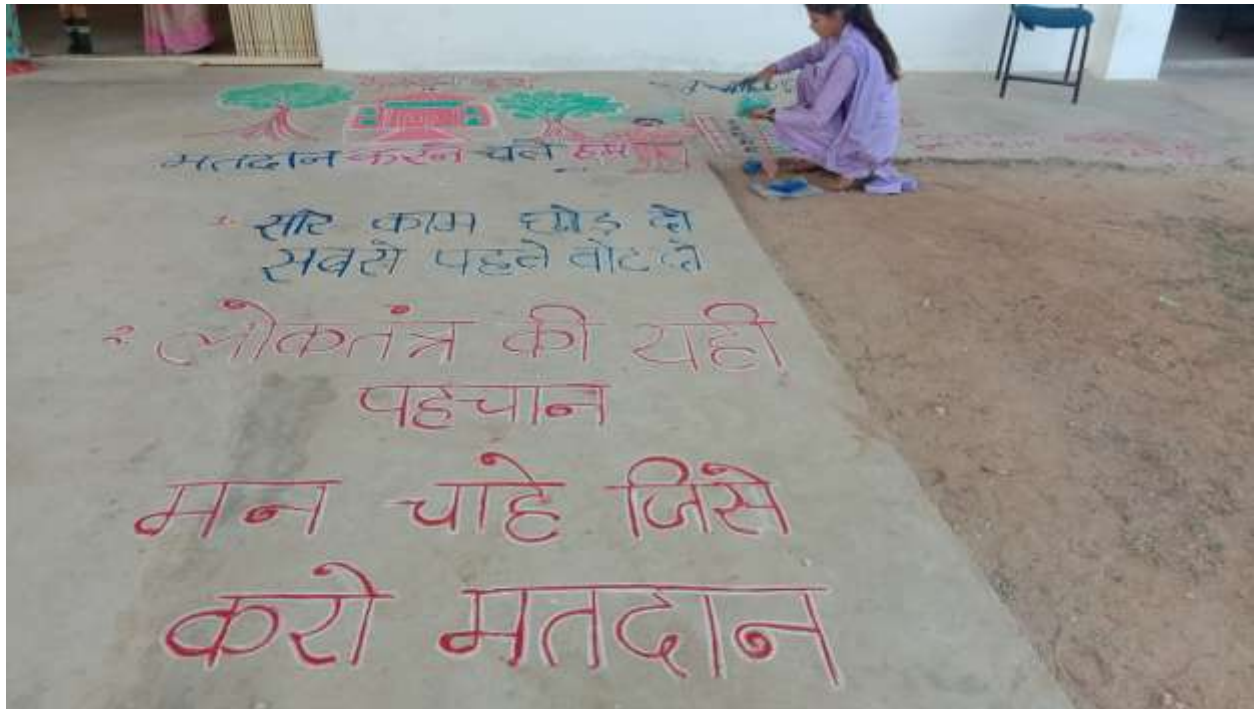 मतदान करने चले हम
1. सारे काम छोड़ दो
सबसे पहले वोट दो
2. लोकतंत्र की यही
पहचान
मन चाहे जिसे
करो मतदान